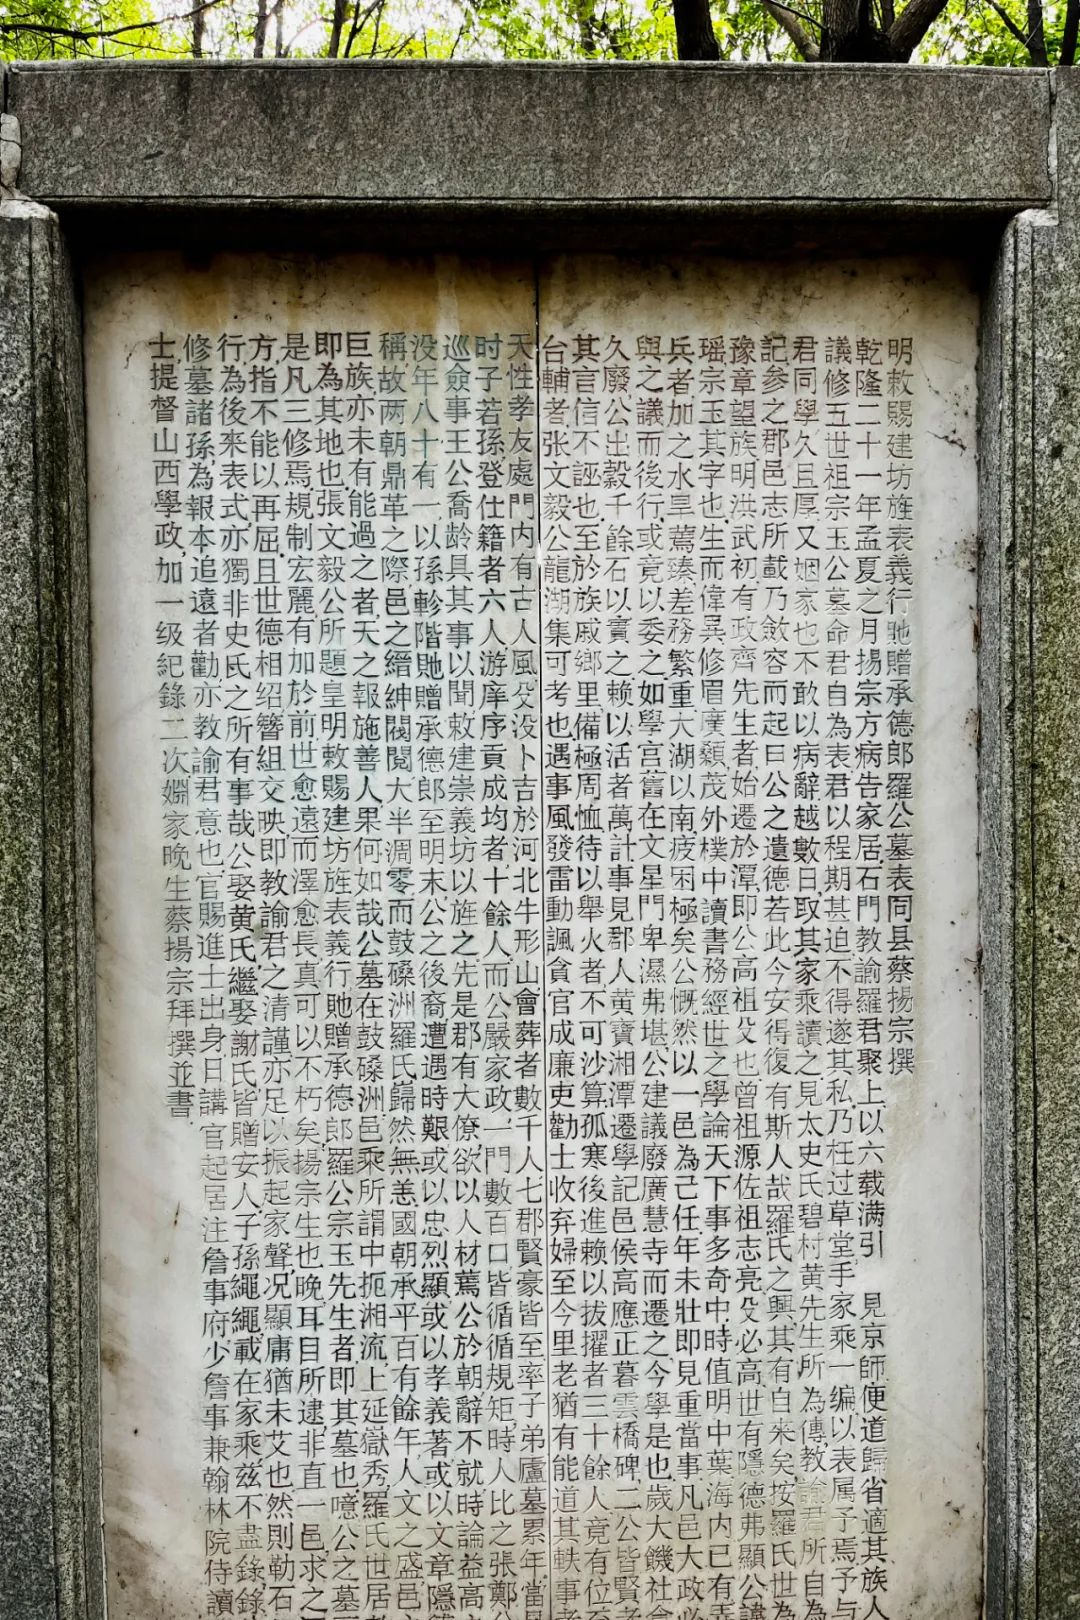 明敕賜建坊旌表義行貤贈承德郎羅公墓表同县蔡揚宗撰
乾隆二十一年孟夏之月揚宗方病告家居石門教諭羅君聚上以六载满引見京師便道歸省適其族人
議修五世祖宗玉公墓命君自為表君以程期甚迫不得遂其私乃枉过草堂手家乘一编以表属予焉予与
君同學久且厚又姻家也不敢以病辭越數日取其家乘讀之見太史氏碧村黄先生所為傳教諭君所自為
記參之郡邑志所載乃斂容而起曰公之遺德若此今安得復有斯人哉羅氏之興其有自来矣按羅氏世為
豫章望族明洪武初有政齊先生者始遷於潭即公高祖殳也曾祖源佐祖志亮殳必高世有隱德弗顯公諱
瑶宗玉其字也生而偉異修眉廣顙茂外樸中讀書務經世之學論天下事多奇中時值明中葉海内已有
兵者加之水旱薦臻差務繁重大湖以南疲困極矣公慨然以一邑為己任年未壯即見重當事凡邑大政必
與之議而後行或竟以委之如學宮舊在文星門卑濕弗堪公建議廢廣慧寺而遷之今學是也歲大饑社倉
久廢公出穀千餘石以實之赖以活者萬計事見郡人黄寶湘潭遷學記邑侯高應正暮雲橋碑二公皆賢者
其言信不誣也至於族戚鄉里備極周恤待以舉火者不可沙算孤寒後進赖以拔擢者三十餘人竟有位至
台輔者张文毅公龍湖集可考也遇事風發雷動諷貪官成廉吏勸士收弃婦至今里老猶有能道其軼事者
天性孝友處門内有古人風殳没卜吉於河北牛形山會葬者數千人七郡賢豪皆至率子弟廬墓累年當
时子若孫登仕籍者六人游庠序貢成均者十餘人而公嚴家政一門數百口皆循循規矩時人比之張鄭公
巡僉事王公喬龄具其事以聞敕建崇義坊以旌之先是郡有大僚欲以人材薦公於朝辭不就時論益高之
没年八十有一以孫軫階貤贈承德郎至明末公之後裔遭遇時艱或以忠烈顯或以孝義著或以文章隱
稱故两朝鼎革之際邑之縉紳閥閲大半凋零而鼓磉洲羅氏巋然無恙國朝承平百有餘年人文之盛邑
巨族亦未有能過之者天之報施善人果何如哉公墓在鼓磉洲邑乘所謂中扼湘流上延嶽秀羅氏世居
即為其地也張文毅公所題皇明敕賜建坊旌表義行貤贈承德郎羅公宗玉先生者即其墓也噫公之墓
是凡三修焉規制宏麗有加於前世愈遠而澤愈長真可以不朽矣揚宗生也晚耳目所逮非直一邑求之
方指不能以再屈且世德相绍簪組交映即教諭君之清謹亦足以振起家聲况顯庸猶未艾也然則勒石
行為後來表式亦獨非史氏之所有事哉公娶黄氏繼娶謝氏皆贈安人子孫繩繩載在家乘兹不盡錄錄
修墓諸孫為報本追遠者勸亦教諭君意也官賜進士出身日講官起居注詹事府少詹事兼翰林院侍讀
士提督山西學政加一级紀錄二次姻家晚生蔡揚宗拜撰並書